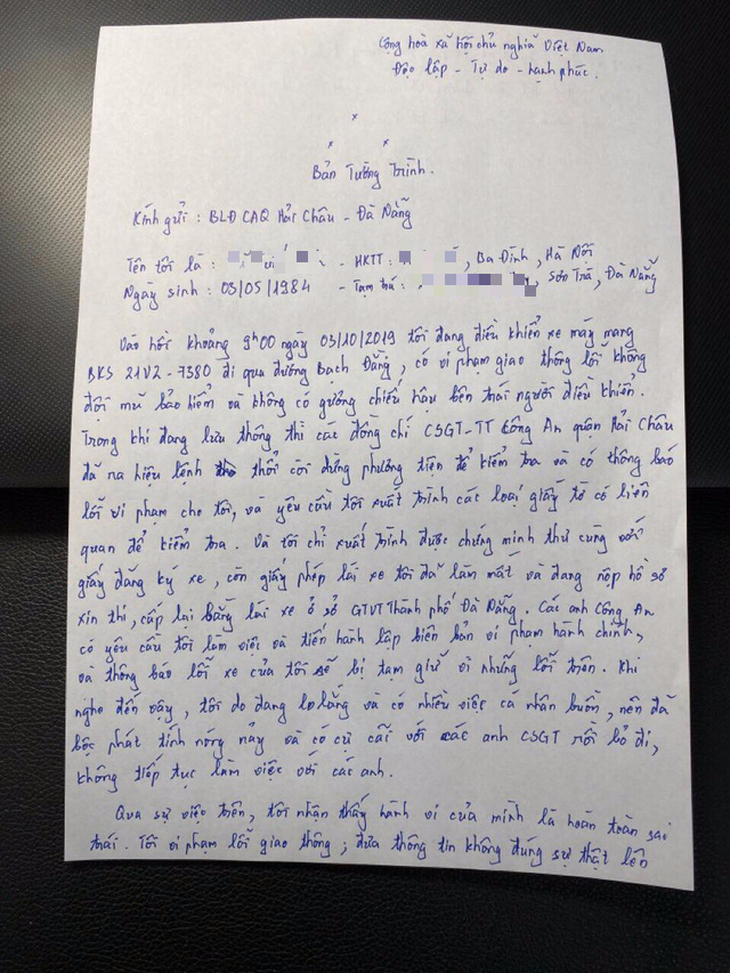 Cộng hoà xã hội chủ nghĩa Việt Nam
Độc lập - Tự do - hạnh phúc.
Bản Tường Trình.
Kính gửi : BLĐ CAQ Hải Châu - Đà Nẵng
Tên tôi là : - HKTT : , Ba Đình, Hà Nội
Ngày sinh : 03/05/1984 - Tạm trú : , Sơn Trà, Đà Nẵng
Vào hồi khoảng 9h00 ngày 03/10/2019 tôi đang điều khiển xe máy mang
BKS 21V2 - 7380 đi qua đường Bạch Đằng, có vi phạm giao thông lỗi không
đội mũ bảo hiểm và không có gương chiếu hậu bên trái người điều khiển.
Trong khi đang lưu thông thì các đồng chí CSGT-TT Công An quận Hải Châu
đã ra hiệu lệnh thổi còi dừng phương tiện để kiểm tra và có thông báo
lỗi vi phạm cho tôi, và yêu cầu tôi xuất trình các loại giấy tờ có liên
quan để kiểm tra. Và tôi chỉ xuất trình được chứng minh thư cùng với
giấy đăng ký xe, còn giấy phép lái xe tôi đã làm mất và đang nộp hồ sơ
xin thi, cấp lại bằng lái xe ở sở GTVT Thành phố Đà Nẵng. Các anh Công An
có yêu cầu tôi làm việc và tiến hành lập biên bản vi phạm hành chính,
và thông báo lỗi xe của tôi sẽ bị tạm giữ vì những lỗi trên. Khi
nghe đến vậy, tôi do đang lo lắng và có nhiều việc cá nhân buồn, nên đã
bộc phát tính nóng nảy và có cự cãi với các anh CSGT rồi bỏ đi,
không tiếp tục làm việc với các anh.
Qua sự việc trên, tôi nhận thấy hành vi của mình là hoàn toàn sai
trái. Tôi vi phạm lỗi giao thông ; đưa thông tin không đúng sự thật lên